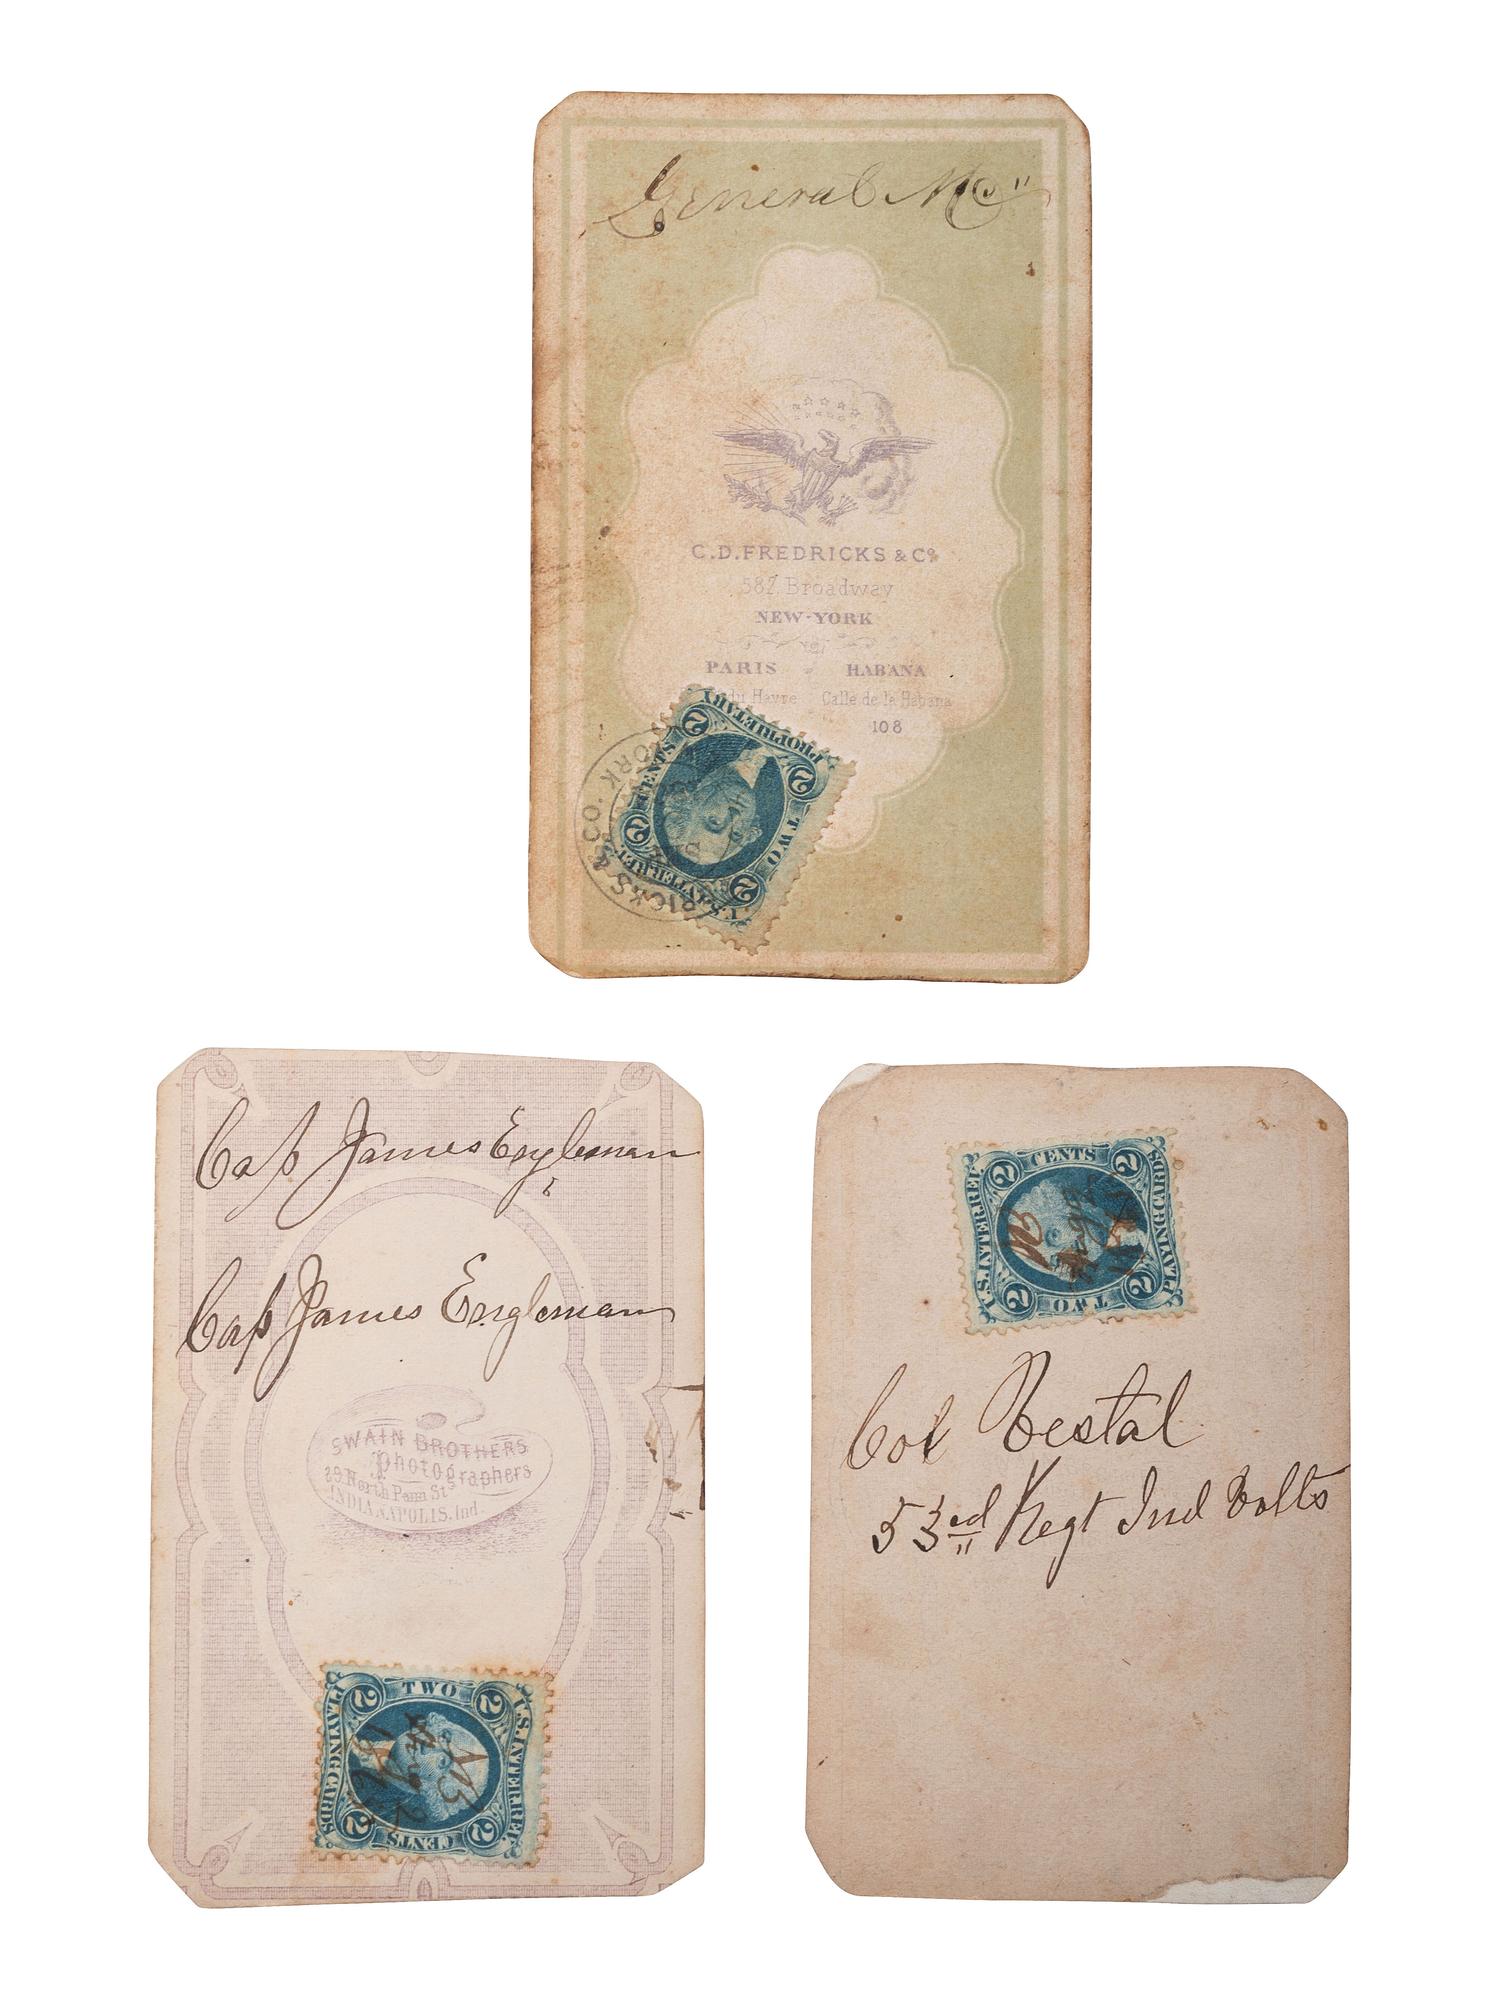 General Mc"
C.D. FREDRICKS & Co.
587 Broadway
NEW-YORK
PARIS HABANA
du Havre Calle de la Habana
108
U.S. INTER. REV. PROPRIETARY
TWO CENTS
2 2 2 2
YORK
RICKS & CO.
Cap James Engleman
Cap James Engleman
SWAIN BROTHERS
Photographers
29 North Penn St.
INDIANAPOLIS, Ind.
TWO
PLAYING CARDS
U.S. INTER. REV.
CENTS
2 2 2 2
CENTS
U.S. INTER. REV.
PLAYING CARDS
TWO
2 2 2 2
Col Vestal
53rd Regt Ind Volls